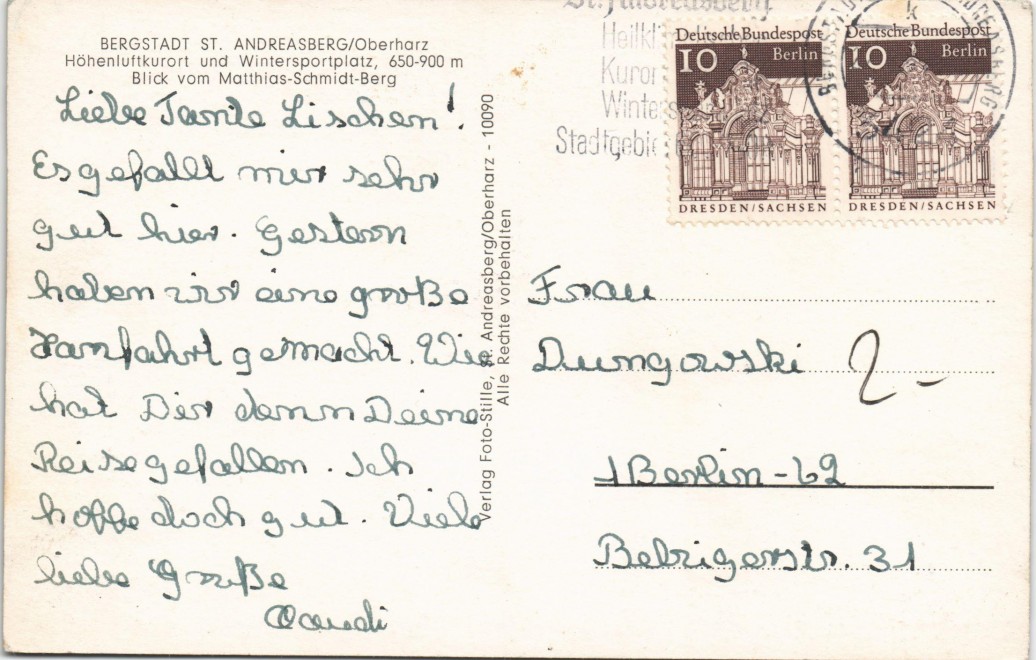 BERGSTADT ST. ANDREASBERG/Oberharz
Höhenluftkurort und Wintersportplatz, 650-900 m
Blick vom Matthias-Schmidt-Berg
Liebe Tante Lischen!
Es gefällt mir sehr
gut hier. Gestern
haben wir eine große
Harzfahrt gemacht. Wie
hat Dir denn Deine
Reise gefallen. Ich
hoffe doch gut. Viele
liebe Grüße
Verlag Foto-Stille, St. Andreasberg/Oberharz - 10090
Alle Rechte vorbehalten
St. Andreasberg
Heilkli
Kuror
Winters
Stadtgebie
Deutsche Bundespost
10 Berlin
DRESDEN/SACHSEN
Deutsche Bundespost
10 Berlin
DRESDEN/SACHSEN
Frau
Dungowski
2-
1 Berlin-62
Belzigerstr. 31